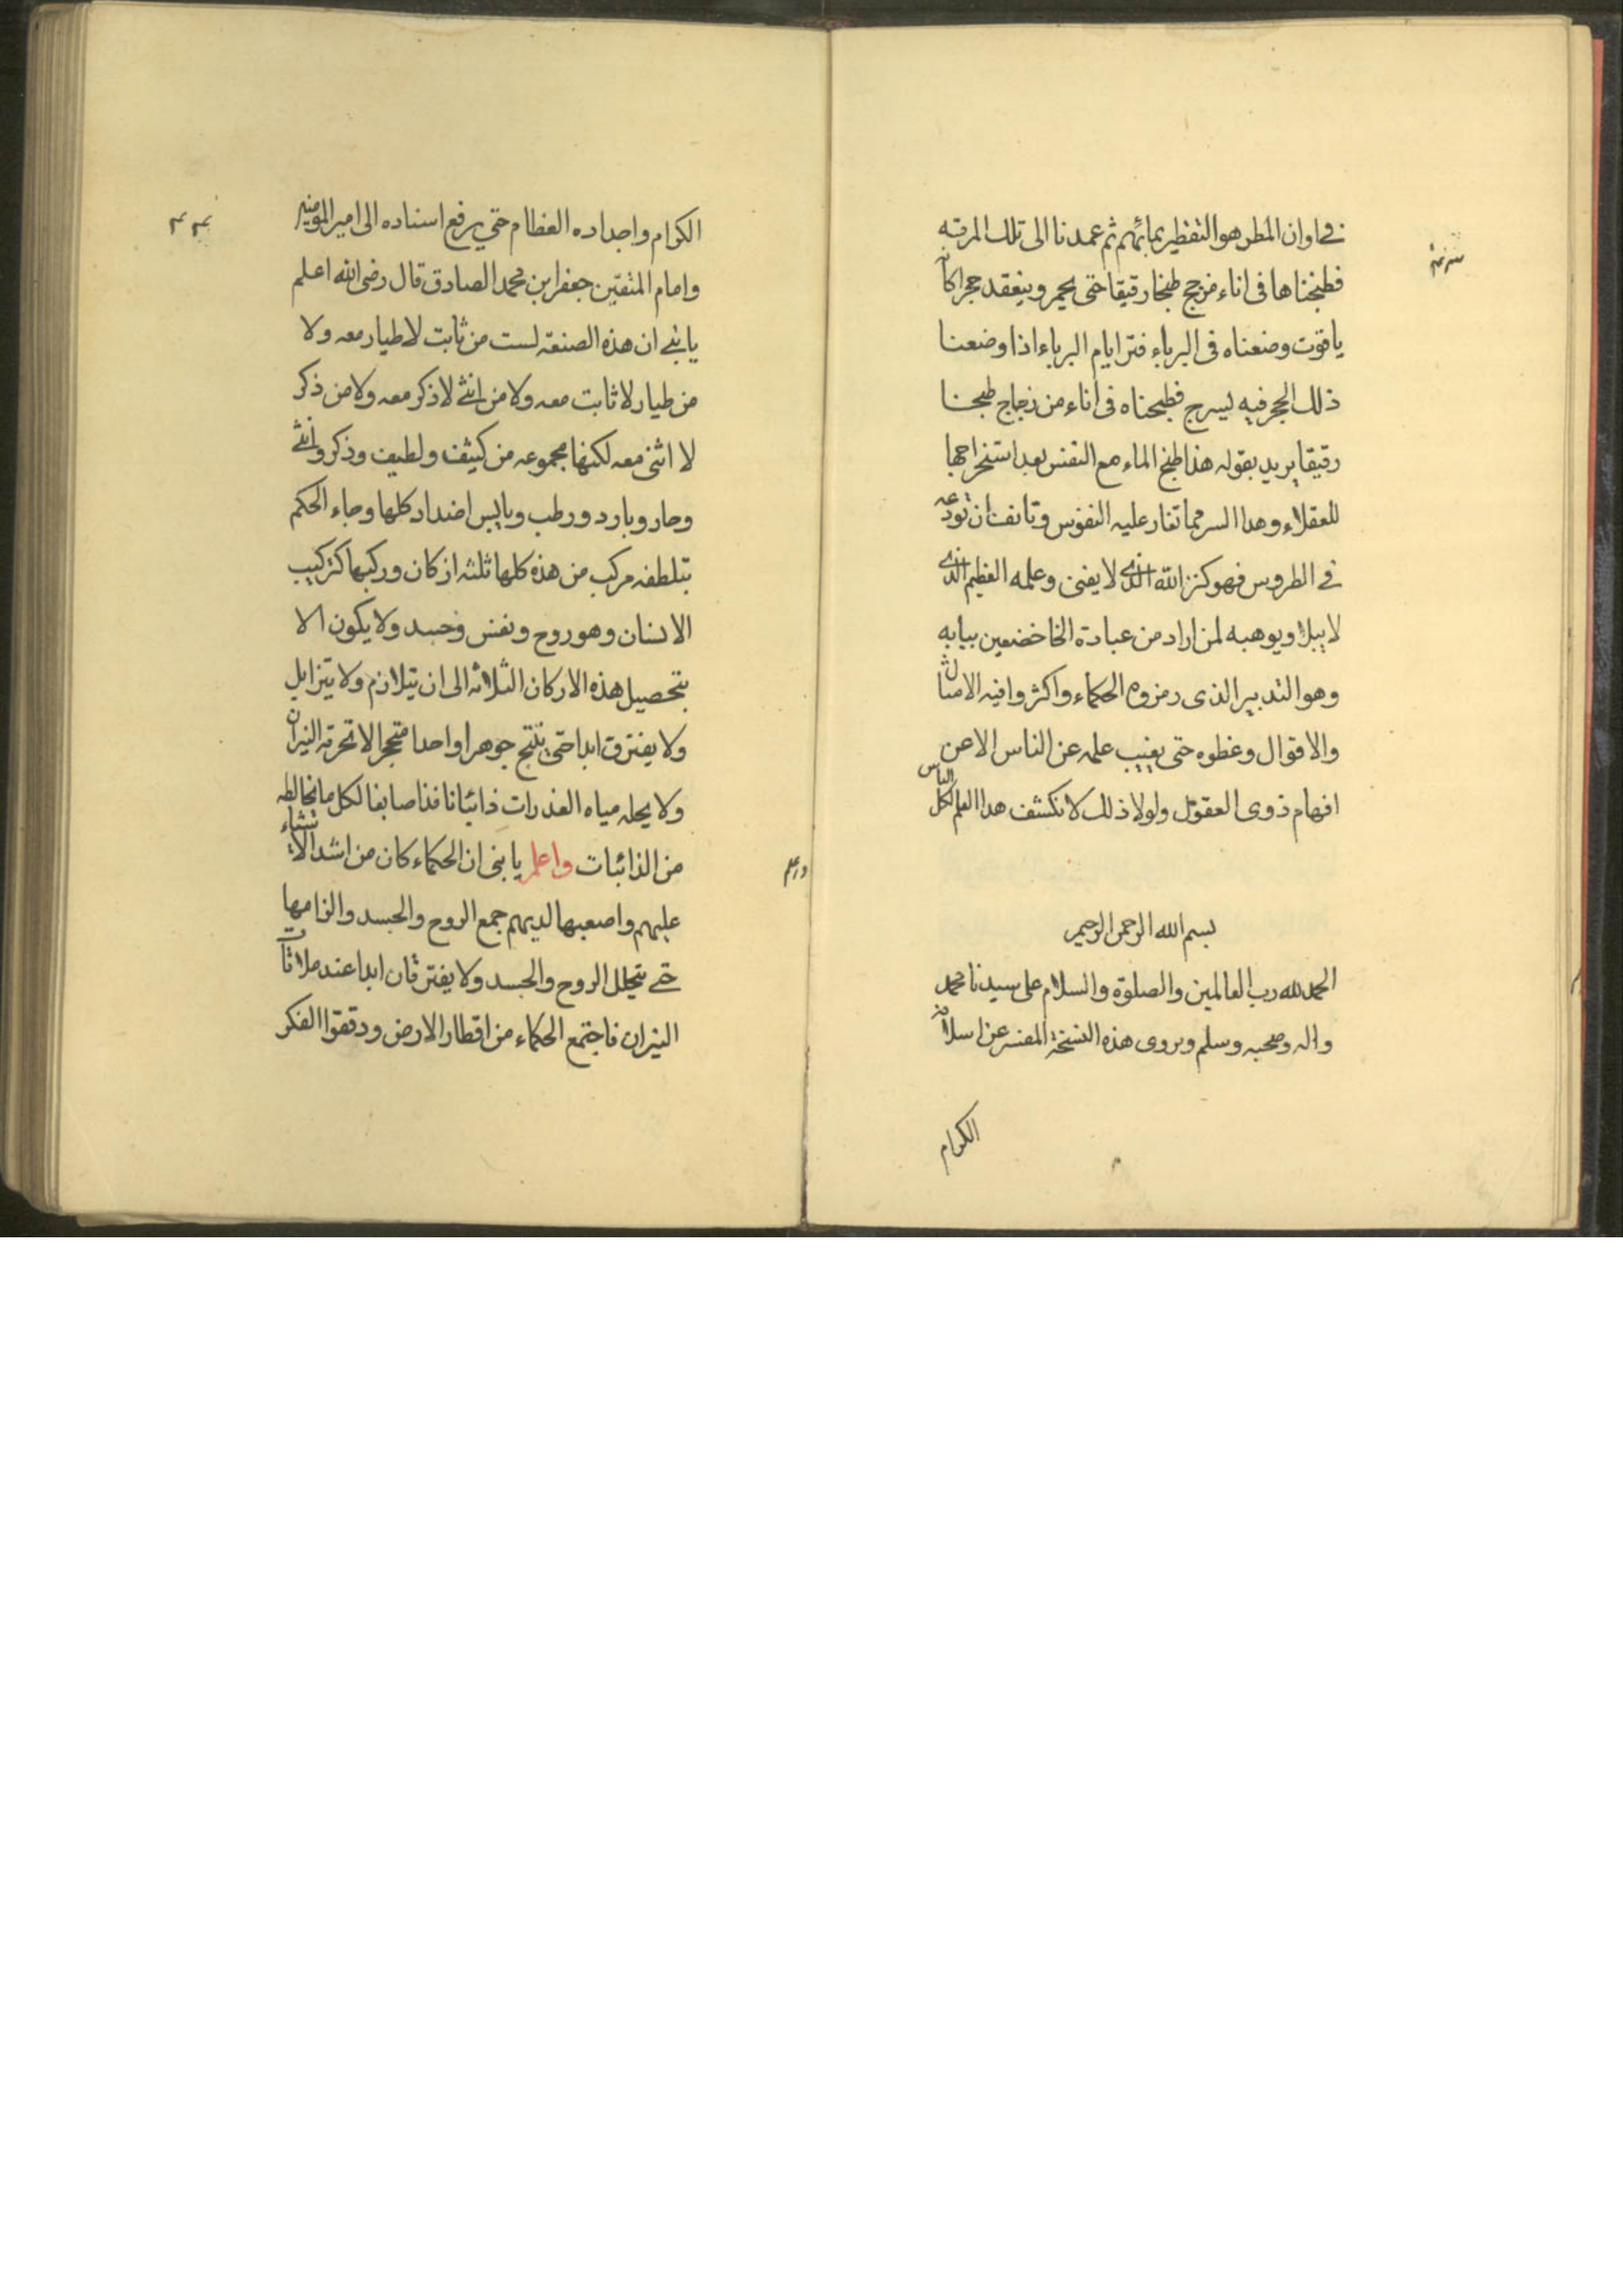 في اوان المطر هو التقطير بمائهم ثم عمدنا الى تلك المرتبه
فطبخناها فى اناء مزجج طبخا رقيقا حتى يحمر وينعقد حجرا كانه
ياقوت وضعناه فى البرباء فترا ايام البرباء اذا وضعنا
ذلك الحجر فيه ليسرج فطبخناه فى اناء من زجاج طبخنا
رقيقا يريد بقوله هذا طبخ الماء مع النفس بعد استخراجها
للعقلاء وهدا السر مما تغار عليه النفوس وتانف ان تودعه
في الطروس فهو كنز الله الذى لا يفنى وعلمه العظيم الذى
لا يبلا ويوهبه لمن اراد من عباده الخاضعين ببابه
وهو التدبير الذى رمزوه الحكماء واكثروا فيه الامثال
والاقوال وغطوه حتى يغيب علمه عن الناس الا عن
افهام ذوى العقول ولولا ذلك لانكشف هدا العلم لكل الناس
بسم الله الرحمن الرحيم
الحمد لله رب العالمين والصلوة والسلام على سيدنا محمد
واله وصحبه وسلم ويروى هذه النسخة المفسر عن اسلافه
الكرام
الكرام واجداده العظام حتي يرفع اسناده الى امير المومنين
وامام المتقين جعفر ابن محمد الصادق قال رضى الله اعلم
يا بني ان هذه الصنعة لست من ثابت لا طيار معه ولا
من طيار لا ثابت معه ولا من انثى لا ذكر معه ولا من ذكر
لا انثى معه لكنها مجموعه من كثيف ولطيف وذكر وانثى
وحار وبارد ورطب ويابس اضداد كلها وجاء الحكم
بتلطفه مركب من هذه كلها ثلثه اركان وركبها كتركيب
الانسان وهو روح ونفس وجسد ولا يكون الا
بتحصيل هذه الاركان الثلاثه الى ان يتلازم ولا يتزايل
ولا يفترق ابدا حتى ينتج جوهرا واحدا متحجرا لا تحرقه النيران
ولا يحله مياه العذرات ذائبا نافذا صابغا لكل ما يخالطه
من الذائبات واعلم يا بنى ان الحكماء كان من اشد الاشياء
عليهم واصعبها لديهم جمع الروح والجسد والزامها
حتي يتحلل الروح والجسد ولا يفترقان ابدا عند ملاقات
النيران فاجتمع الحكماء من اقطار الارض ودققوا الفكر